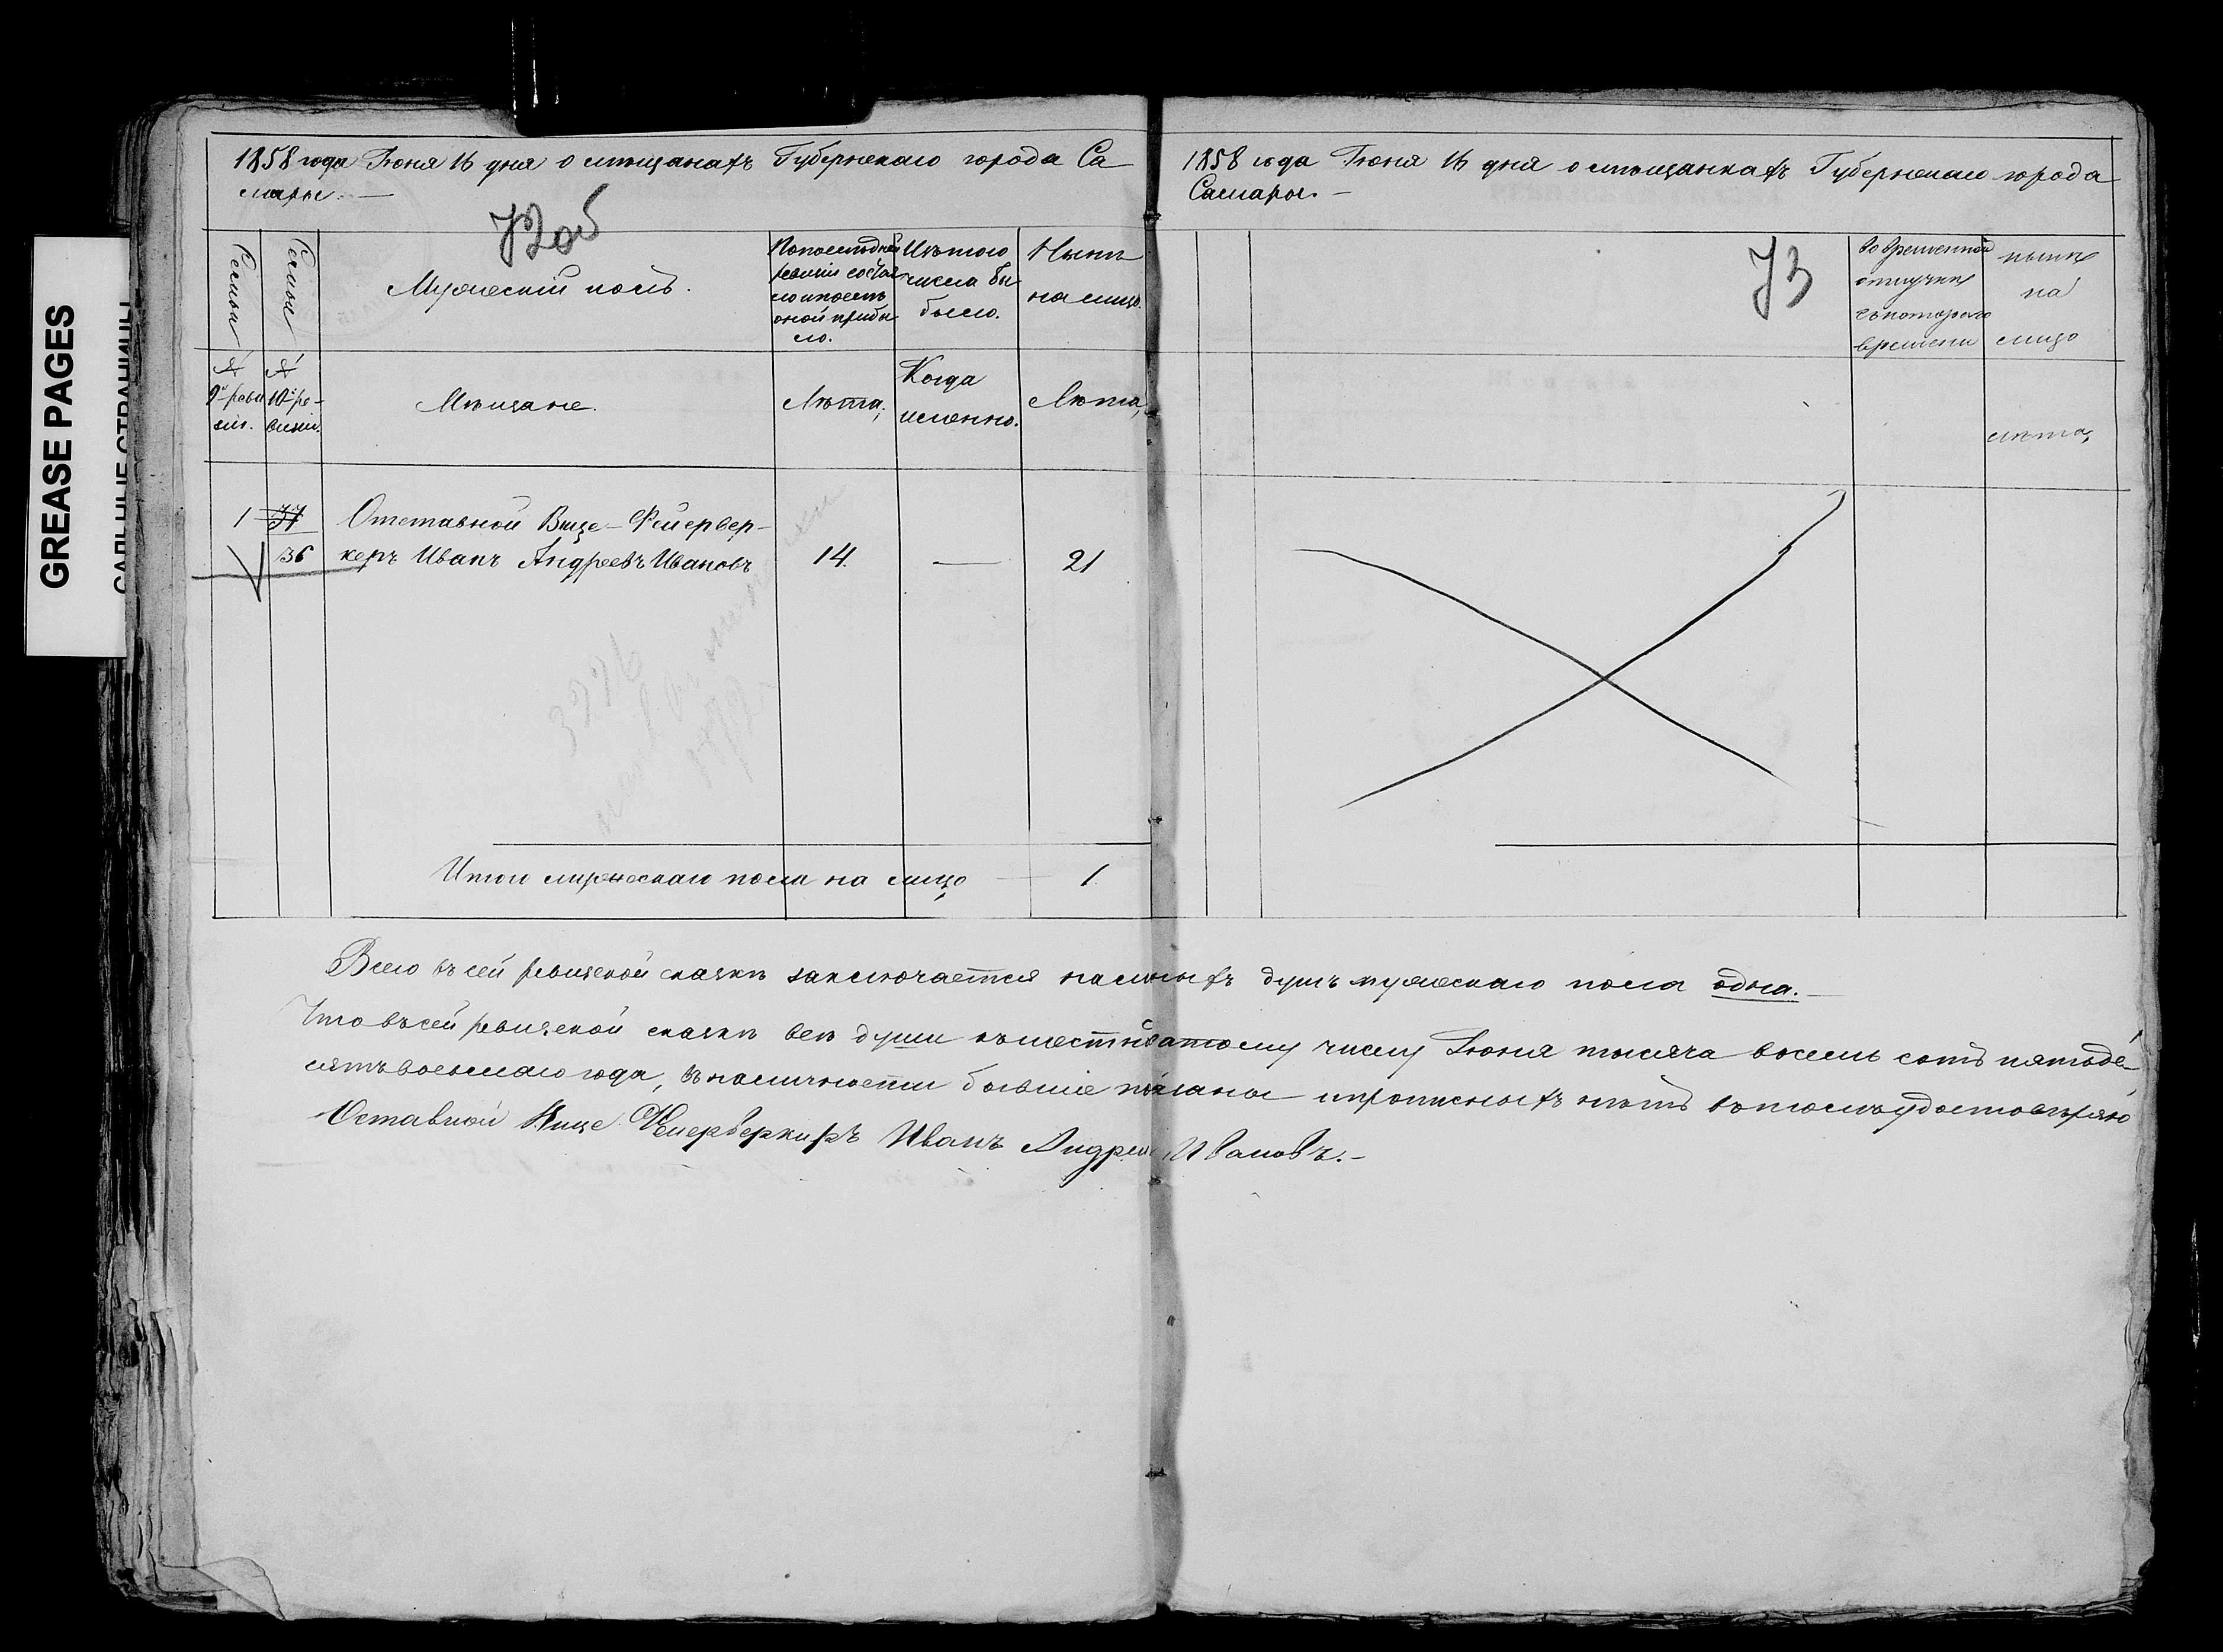 GREASE PAGES
1858 года Іюня 16 дня о мѣщанахъ Губернскаго города Са
мары. —
72об
Семьи
Семьи
Мужескій полъ.
По послѣдней
ревизіи состоя
ло и послѣ
оной прибы
ло.
Изъ того
числа вы
было.
Нынѣ
на лицо.
№
9й реви
зіи.
№
10й ре-
визіи.
Мѣщане.
Лѣта,
Когда
именно.
Лѣта,
1
36
Отставной Вице-Фейервер-
керъ Иванъ Андреевъ Ивановъ
14.
—
21
Итого мужескаго пола на лицо
1
1858 года Іюня 16 дня о мѣщанкахъ Губернскаго города
Самары. —
73
во временной
отлучкѣ
съ котораго
времени
нынѣ
на
лицо
лѣта,
Всего въ сей ревизской сказкѣ заключается наличныхъ душъ мужескаго пола одна. —
Что въ сей ревизской сказкѣ всѣ души къ шестнадцатому числу Іюня тысяча восемь сотъ пятьде-
сятъ восьмаго года, въ наличности бывшіе показаны и прописныхъ нѣтъ въ томъ удостовѣряю
Оставной Вице Фейерверкиръ Иванъ Андреевъ Ивановъ. —